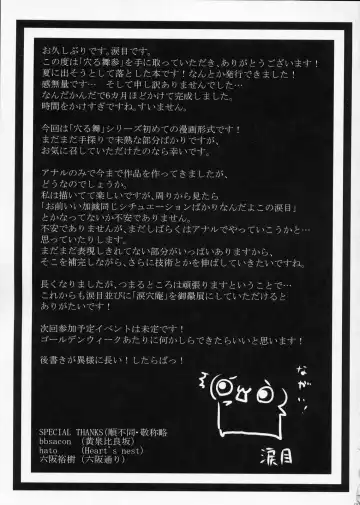 お久しぶりです。涙目です。
この度は「穴る舞参」を手に取っていただき、ありがとうございます!
夏に出そうとして落とした本です!なんとか発行できました!
感無量です… そして申し訳ありませんでした…
なんだかんだで6カ月ほどかけて完成しました。
時間をかけすぎですね。すいません。
今回は「穴る舞」シリーズ初めての漫画形式です!
まだまだ手探りで未熟な部分ばかりですが、
お気に召していただけたのなら幸いです。
アナルのみで今まで作品を作ってきましたが、
どうなのでしょうか。
私は描いてて楽しいですが、周りから見たら
「お前いい加減同じシチュエーションばかりなんだよこの涙目」
とかなってないか不安でありません。
不安でありませんが、まだしばらくはアナルでやっていこうかと…
思っていたりします。
まだまだ表現しきれてない部分がいっぱいありますから、
そこを補完しながら、さらに技術とかを伸ばしていきたいですね。
長くなりましたが、つまるところは頑張りますということで…
これからも涙目並びに「涙穴庵」を御贔屓にしていただけると
ありがたいです!
次回参加予定イベントは未定です!
ゴールデンウィークあたりに何かしらできたらいいと思います!
後書きが異様に長い!したらばっ!
ながい!
涙目
SPECIAL THANKS(順不同・敬称略
bbsacon (黄泉比良坂)
hato (Heart's nest)
六阪裕樹 (六阪通り)